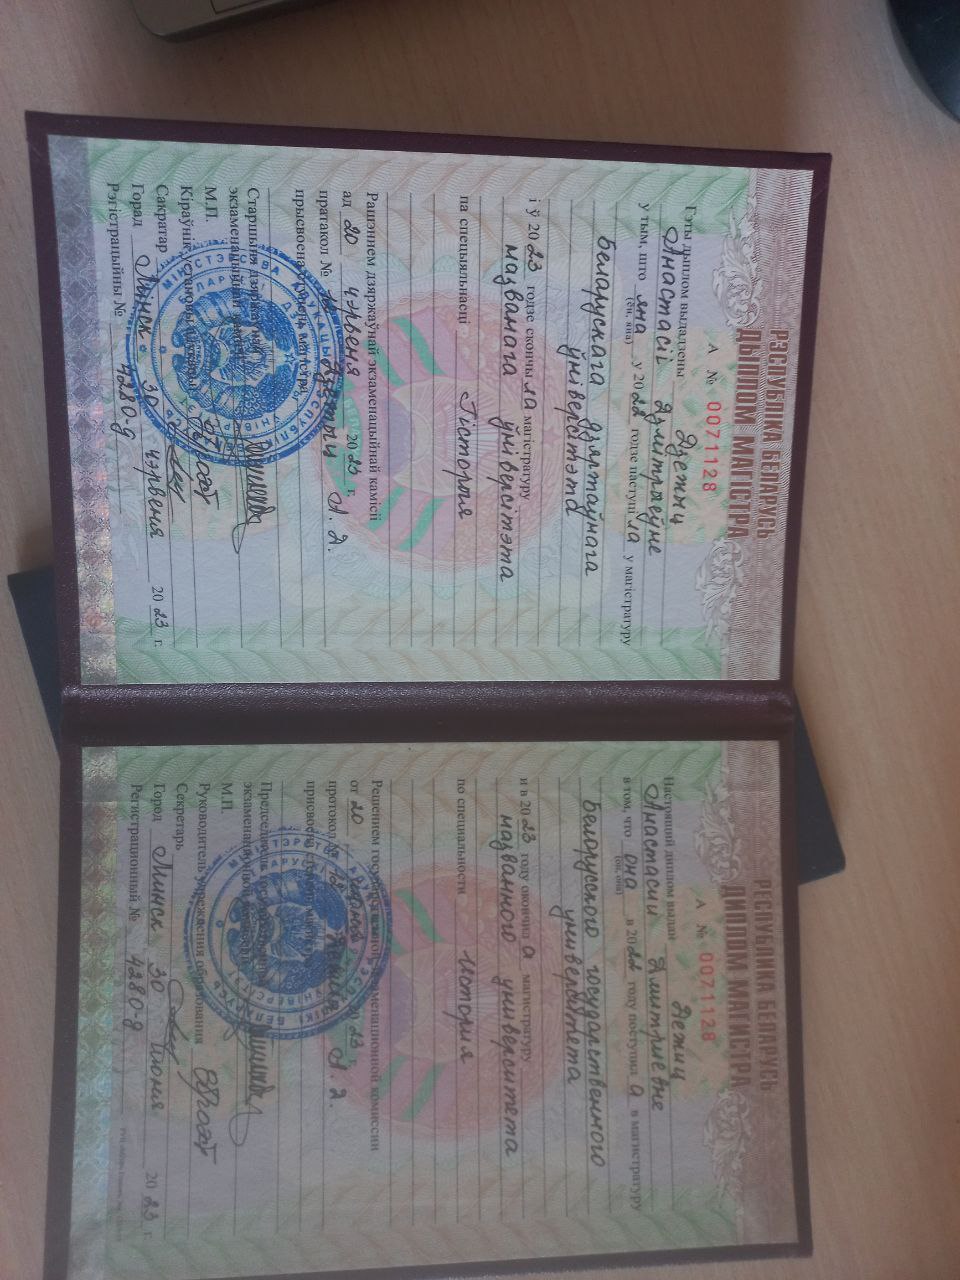 РЭСПУБЛІКА БЕЛАРУСЬ
ДЫПЛОМ МАГІСТРА
А № 0071128
Гэты дыплом выдадзены Дзеціч
Анастасіі Дзмітрыеўне
у тым, што яна у 2022 годзе паступіла у магістратуру
(ён, яна)
Беларускага дзяржаўнага
ўніверсітэта
і ў 2023 годзе скончыла магістратуру
названага ўніверсітэта
па спецыяльнасці Гісторыя
Рашэннем дзяржаўнай экзаменацыйнай камісіі
ад 20 чэрвеня 2023 г.
пратакол № Дзеціч А. Д.
прысвоена ступень магістра
Старшыня дзяржаўнай
экзаменацыйнай камісіі
М.П.
Кіраўнік установы адукацыі
Сакратар
Горад Мінск 30 чэрвеня 2023 г.
Рэгістрацыйны № 4280-д
РЕСПУБЛИКА БЕЛАРУСЬ
ДИПЛОМ МАГИСТРА
А № 0071128
Настоящий диплом выдан Детич
Анастасии Дмитриевне
в том, что она в 2022 году поступила в магистратуру
(он, она)
Белорусского государственного
университета
и в 2023 году окончила магистратуру
названного университета
по специальности История
Решением государственной экзаменационной комиссии
от 20 июня 2023 г.
протокол № Детич А. Д.
присвоена степень магистра
Председатель государственной
экзаменационной комиссии
М.П.
Руководитель учреждения образования
Секретарь
Город Минск 30 июня 2023 г.
Регистрационный № 4280-д